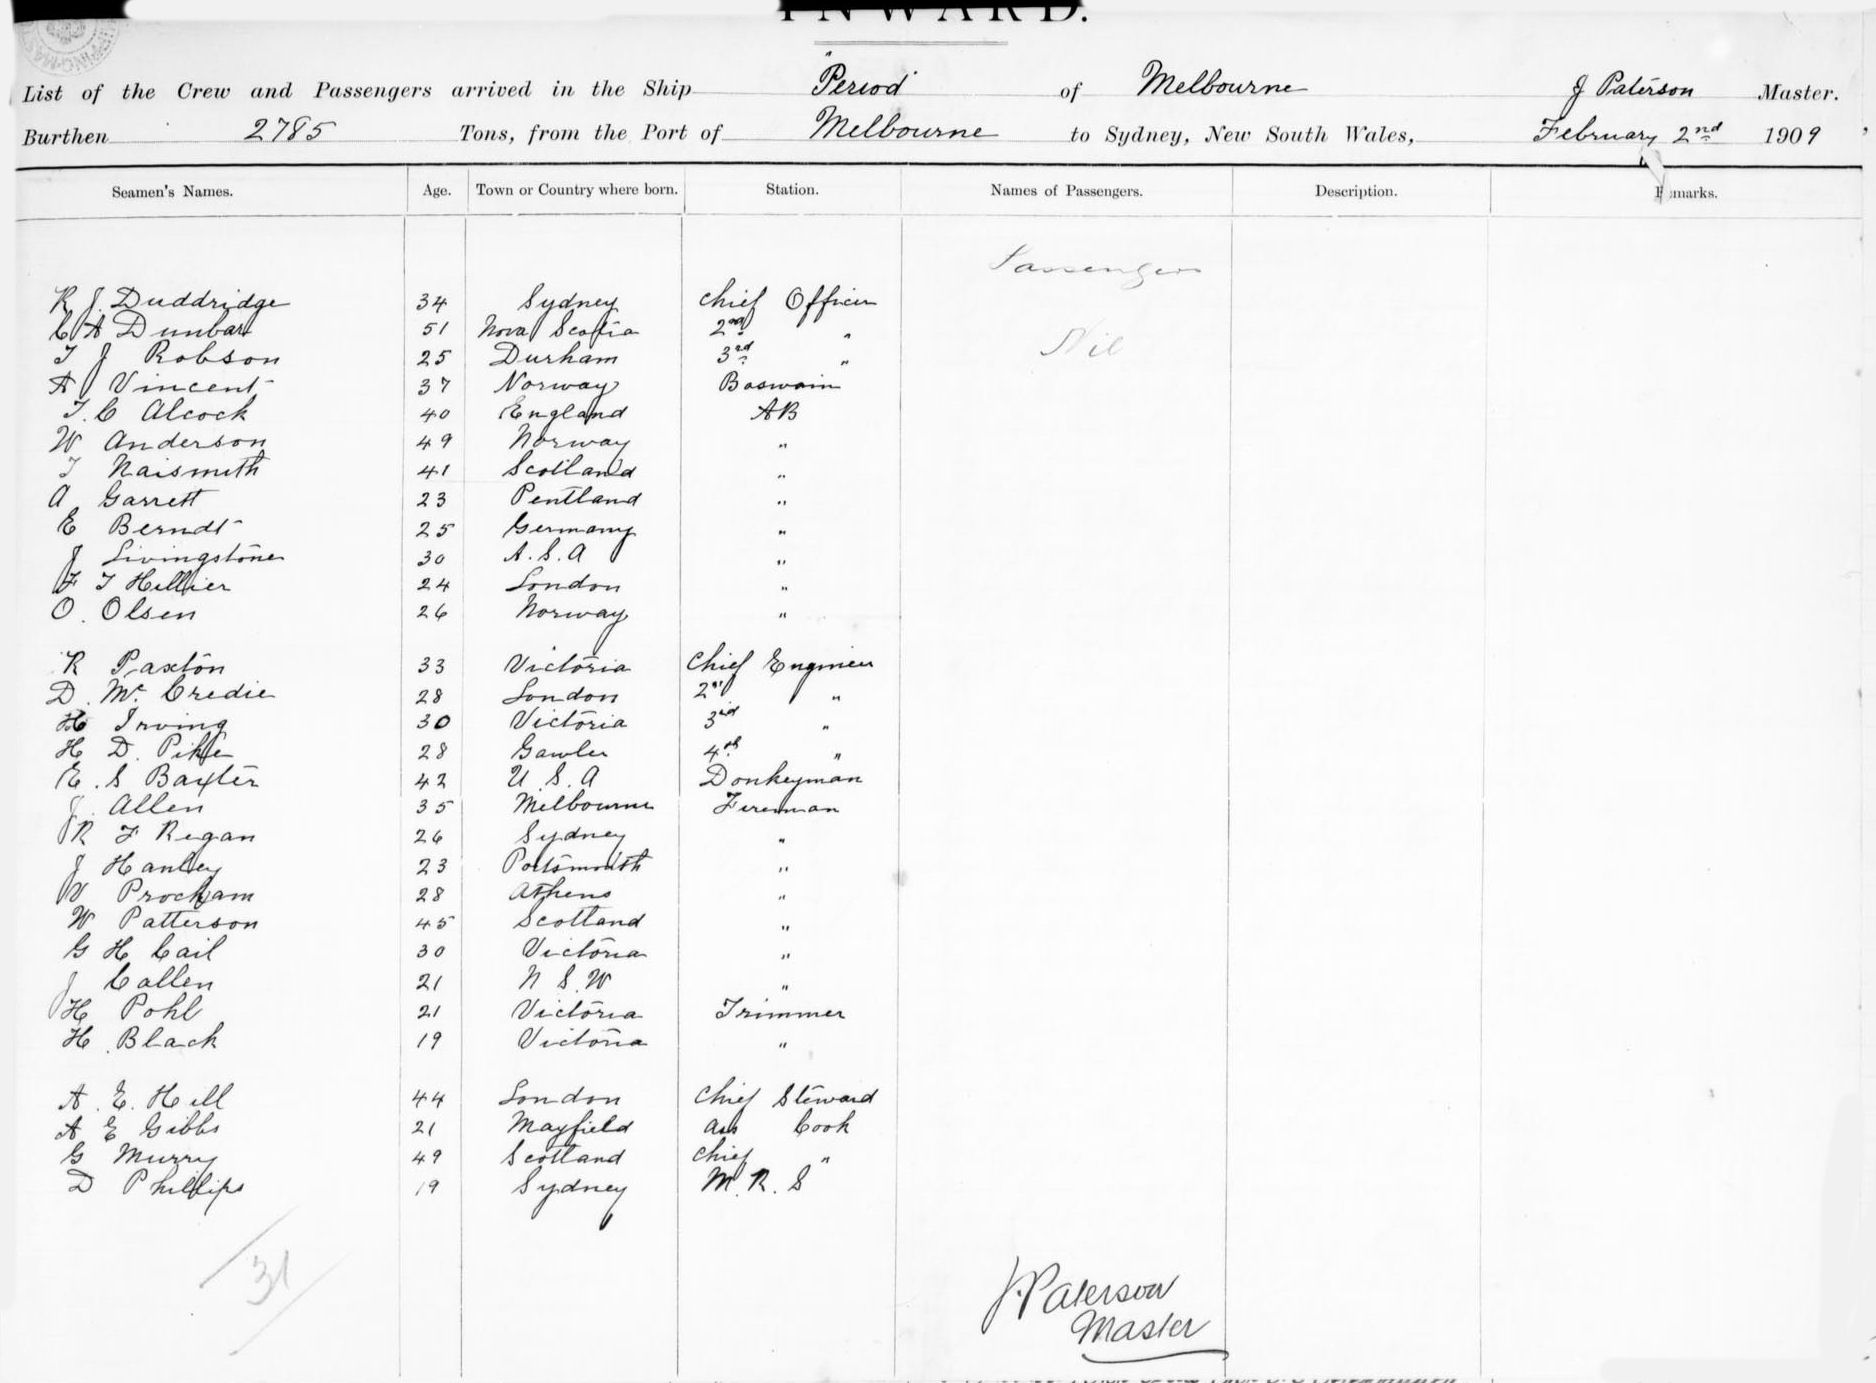 INWARD.
List of the Crew and Passengers arrived in the Ship Period of Melbourne J Paterson Master.
Burthen 2785 Tons, from the Port of Melbourne to Sydney, New South Wales, February 2nd 1909
Seamen's Names. Age. Town or Country where born. Station. Names of Passengers. Description. Remarks.
Passengers
R J Duddridge 34 Sydney Chief Officer
C A Dunbar 51 Nova Scotia 2nd "
T J Robson 25 Durham 3rd "
Nil
A Vincent 37 Norway Boswain
T. C Alcock 40 England AB
W Anderson 49 Norway "
T Naismith 41 Scotland "
A Garrett 23 Pentland "
E Berndt 25 Germany "
J Livingstone 30 A. S. A "
F T Hillier 24 London "
O. Olsen 26 Norway "
R Paxton 33 Victoria Chief Engineer
D. McCredie 28 London 2nd "
H Irving 30 Victoria 3rd "
H D. Pike 28 Gawler 4th "
E. S Baxter 42 U. S. A Donkeyman
J. Allen 35 Melbourne Fireman
R F Regan 26 Sydney "
J Hanley 23 Portsmouth "
V Prockam 28 Athens "
W Patterson 45 Scotland "
G H Cail 30 Victoria "
J Callen 21 N S. W "
H Pohl 21 Victoria Trimmer
H. Black 19 Victoria "
A. E. Hill 44 London Chief Steward
A E Gibbs 21 Mayfield Ass Cook
G Murry 49 Scotland Chief "
D Phillips 19 Sydney M. R. S
31
J. Paterson
Master